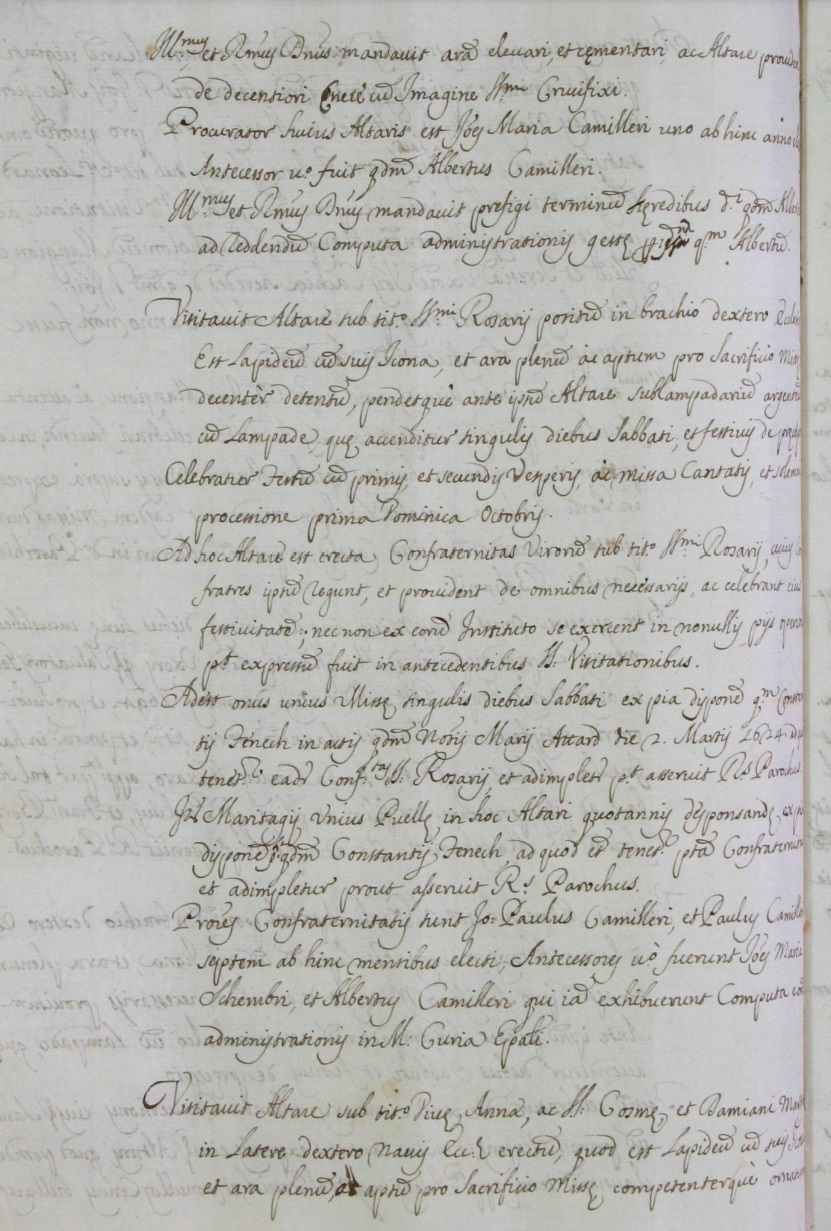 Ill.mus et R.mus Dnus mandavit arã elevari, et cęmentari, ac Altare provideri
de decentiori Cruce cũ Imagine SS.mi Crucifixi.
Procurator huius Altaris est Joẽs Maria Camilleri uno ab hinc anno
Antecessor v.o fuit qdm̃ Albertus Camilleri.
Ill.mus et R.mus Dnus mandavit prefigi terminũ hęredibus d.i qdm̃
ad reddendũ Computa administrationis gestę q.m Albertũ.
Visitavit Altare sub tit.o SS.mi Rosarij positũ in brachio dextero
Est Lapideũ cũ suis Icona, et ara plenũ ac aptum pro Sacrificio
decentèr detentũ, pendetque ante ipsũ Altare sublampadariũ
cũ Lampade, quę accenditur singulis diebus Sabbati, et festivis de
Celebratur Festũ cũ primis, et secundis Vesperis, ac missa Cantatis, et
processione prima Dominica Octobris.
Ad hoc Altare est erecta Confraternitas Virorũ sub tit.o SS.mi Rosarij, cuius
fratres ipsũ regunt, et provident de omnibus necessarijs, ac celebrant
festivitatẽ; nec non ex eorũ Instituto se exercent in nonullis pijs
p.t expressũ fuit in antecedentibus SS. Visitationibus.
Adest onus unius Missę singulis diebus Sabbati ex pia disponẽ q.m
tij Fenech in actis qdm̃ Not.ij Marij Attard die 2. Martij 1624
tenet.r eadẽ Conf.tas SS. Rosarij, et adimpletr p.t asseruit R.s Parochus.
Maritagij Unius Puellę in hoc Altari quotannis desponsandę
disponẽ qdm̃ Constantij Fenech, ad quod tenet.r ptã
et adimpletur prout asseruit R.s Parochus.
Prores Confraternitatis sunt Jo: Paulus Camilleri, et Paulus
septem ab hinc mensibus electi; Antecessores v.o fuerunt Joẽs Maria
Schembri, et Albertus Camilleri qui iã exhibuerunt Computa
administrationis in M: Curia Epali.
Visitavit Altare sub tit.o Divę Annæ, ac SS. Cosmę et Damiani
in Latere dextero Navis Ecc.ę erectũ, quod est Lapideũ cũ suis
et ara plenũ, et aptũ pro Sacrificio Missę competenterque